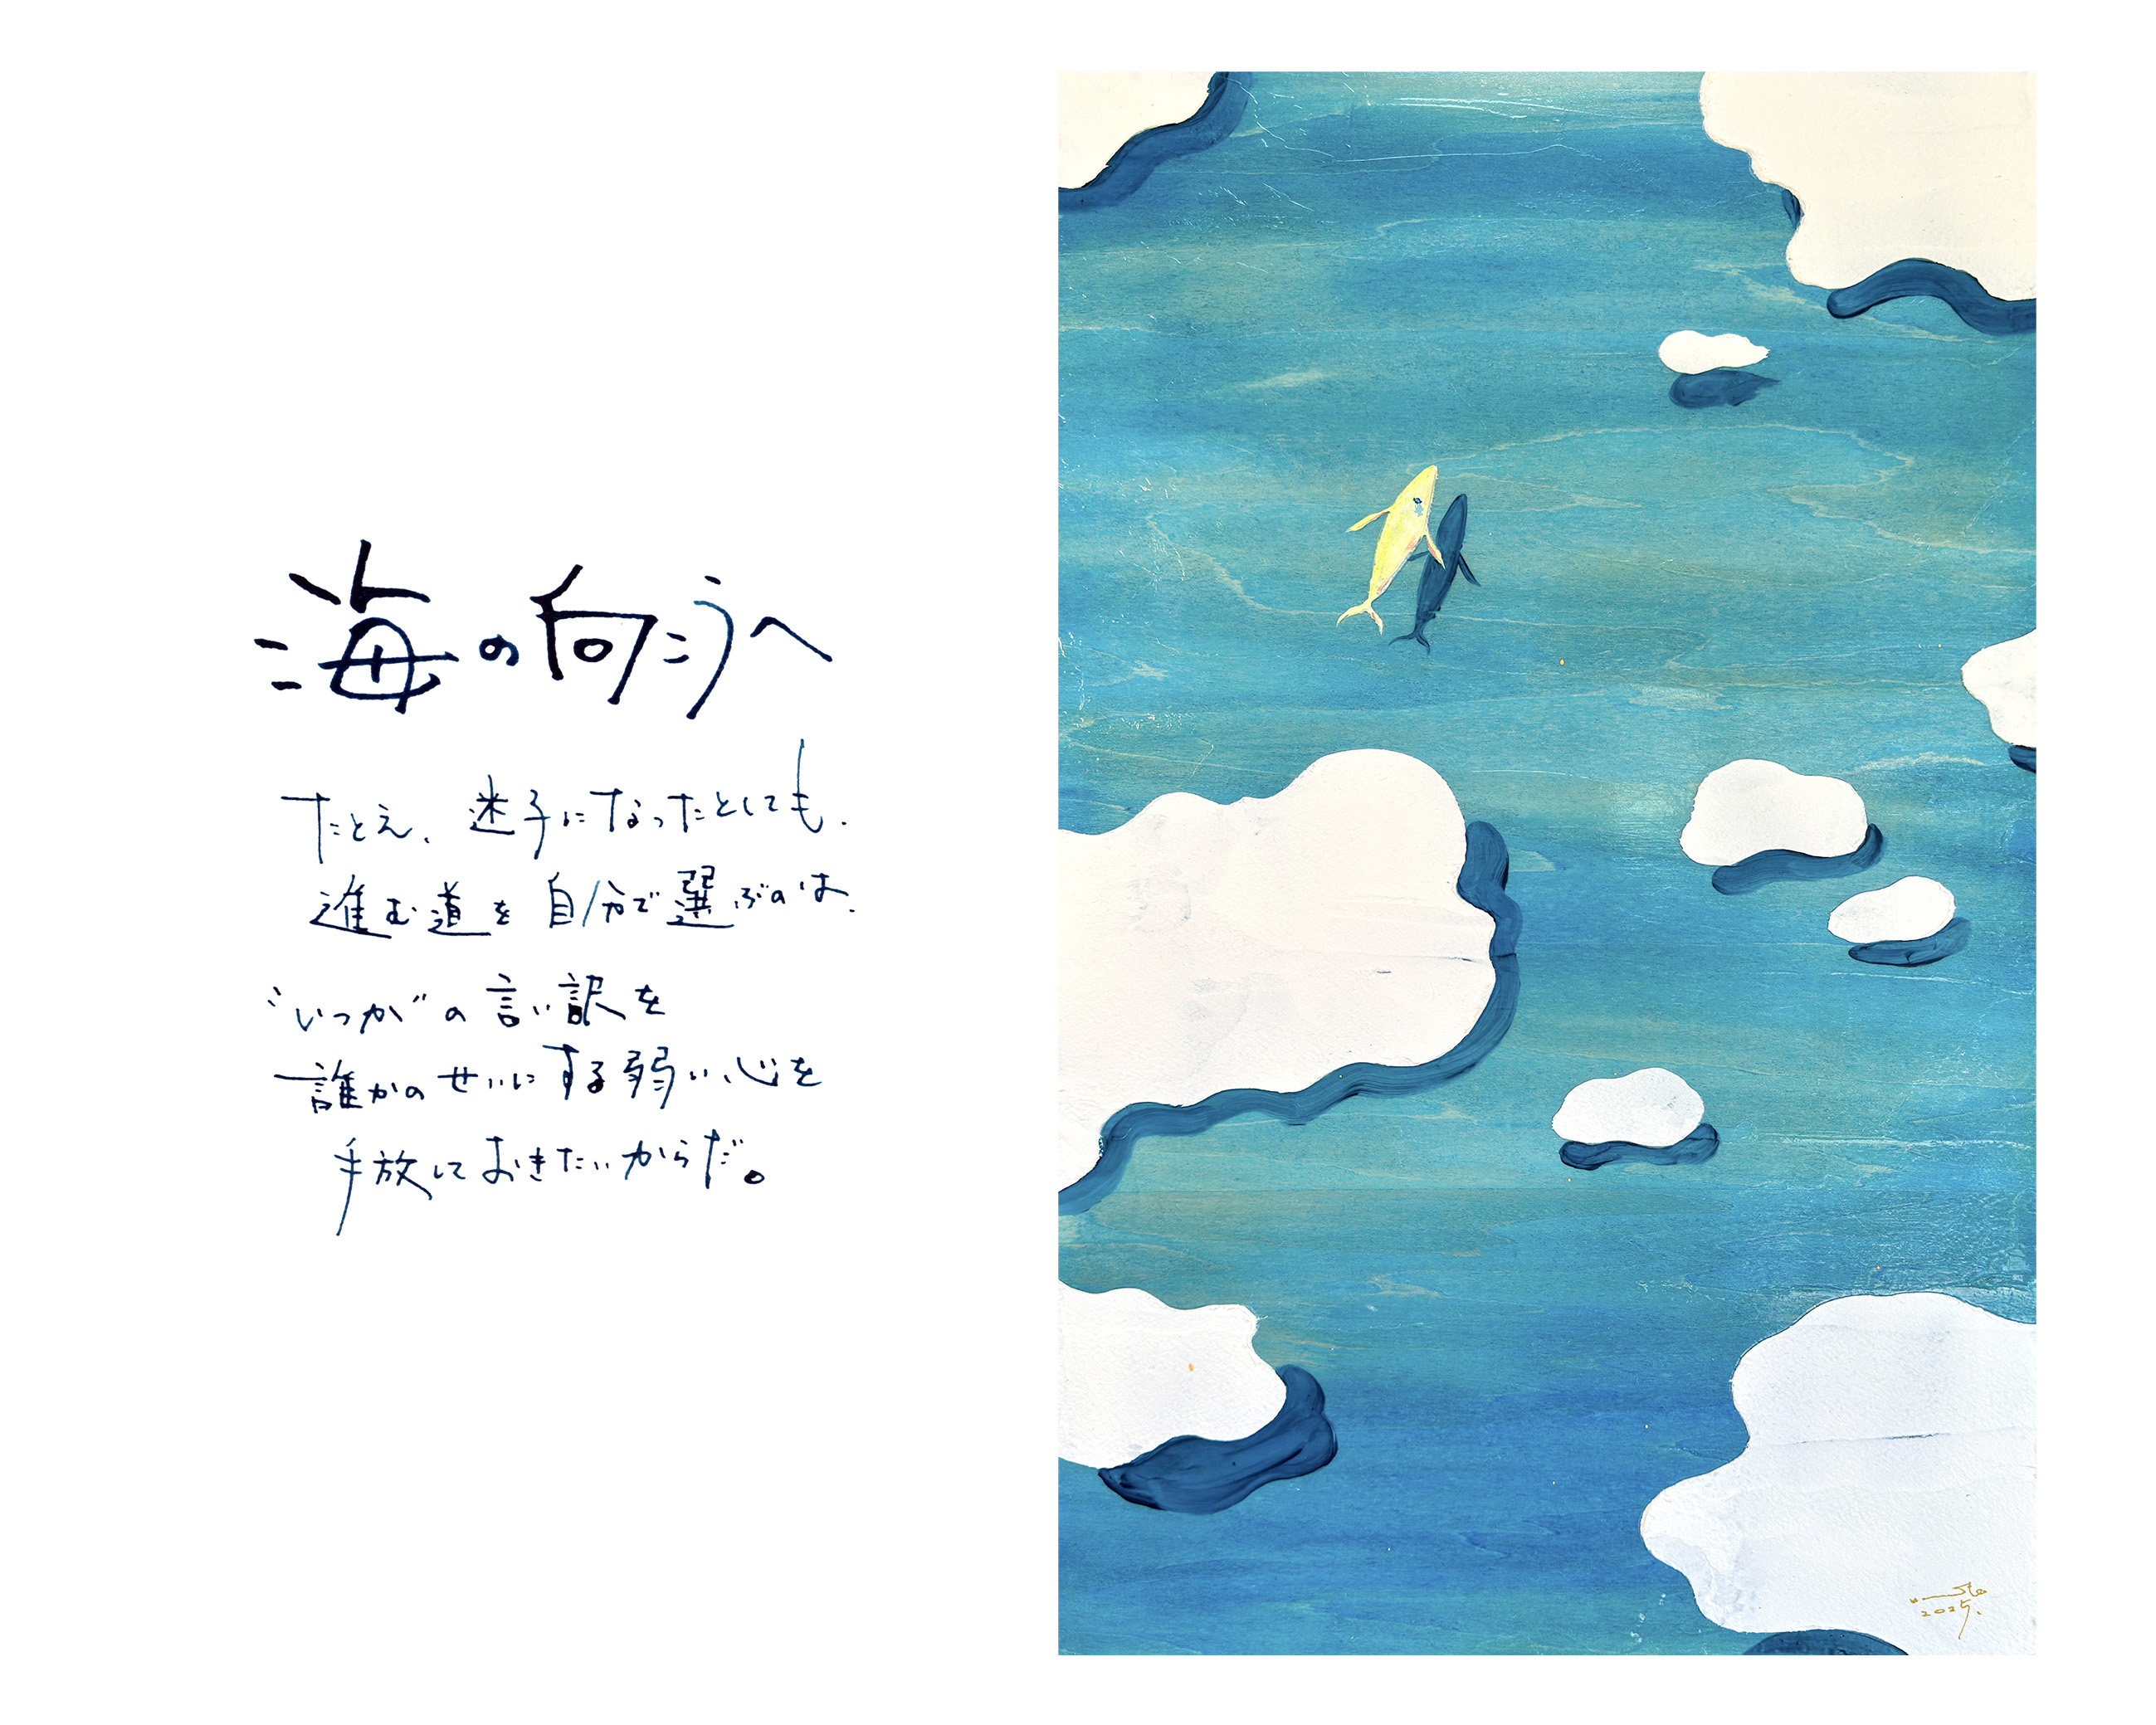 海の向こうへ
たとえ、迷子になったとしても、
進む道を自分で選ぶのは、
“いつか”の言い訳を
誰かのせいにする弱い心を
手放しておきたいからだ。
2025.